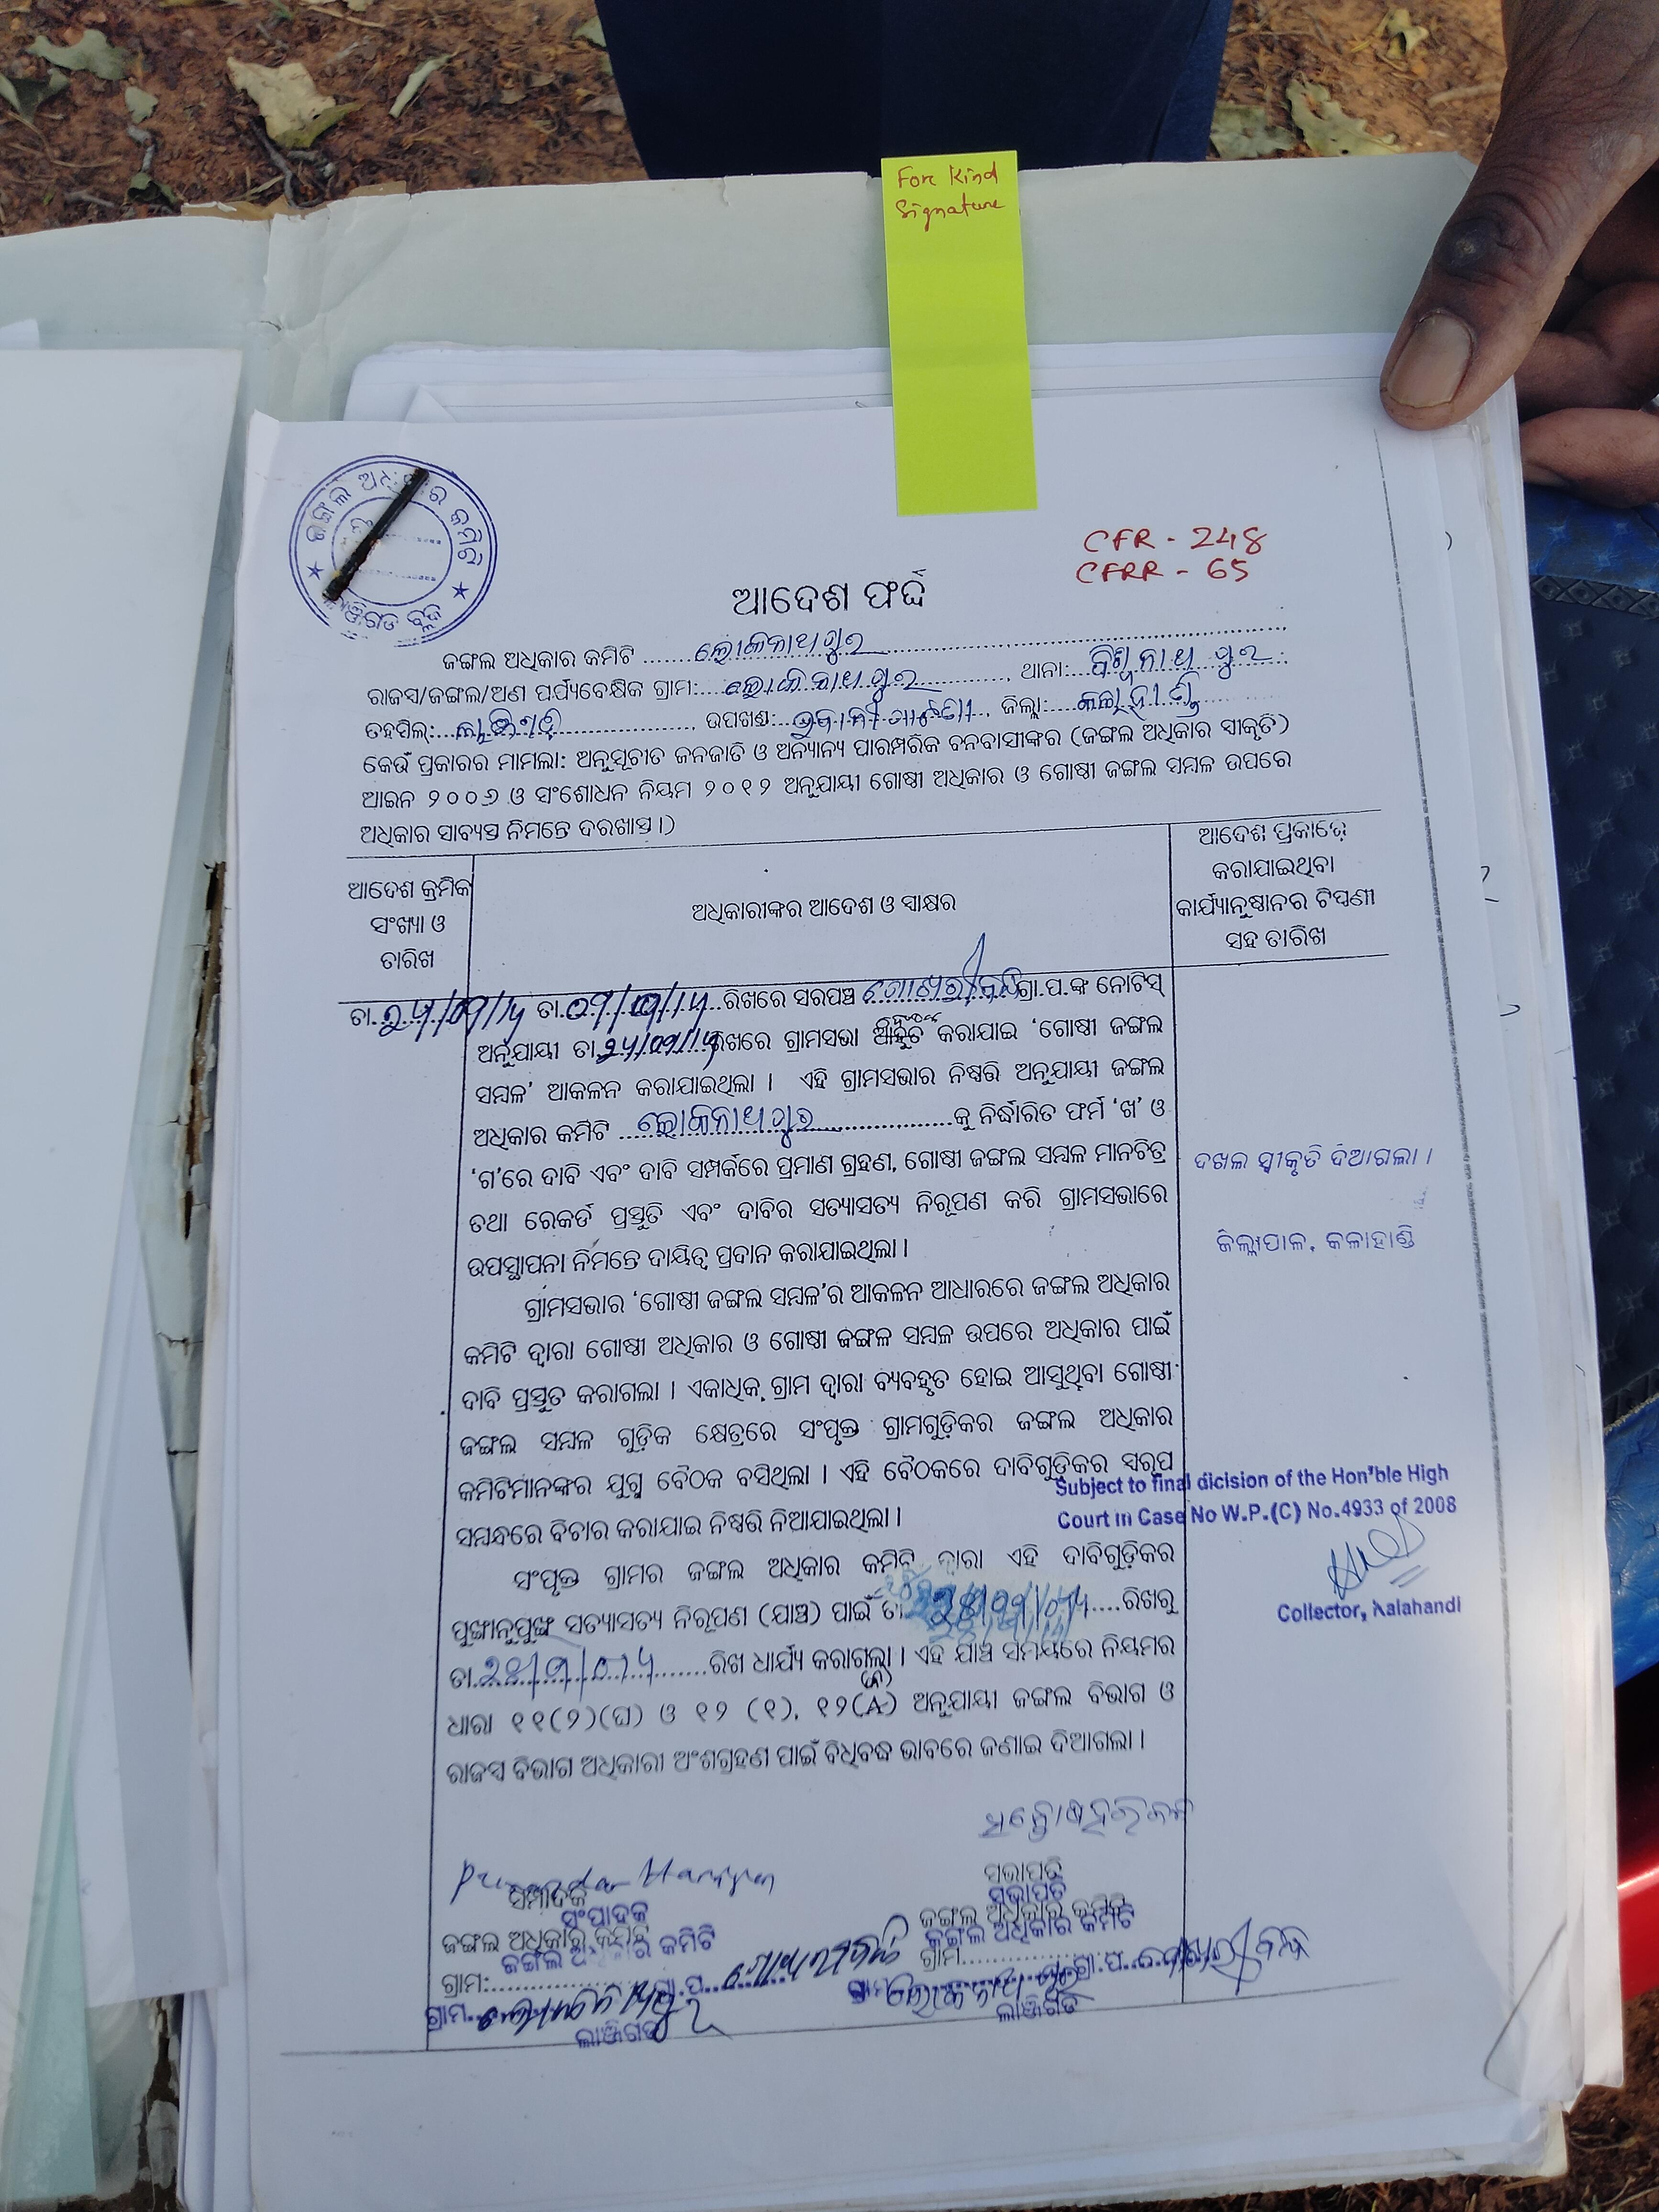 For Kind
Signature
ଜଙ୍ଗଲ ଅଧିକାର କମିଟି
CFR - 248
CFRR - 65
ଆଦେଶ ଫର୍ଦ୍ଦ
ଜଙ୍ଗଲ ଅଧିକାର କମିଟି ..... ଲୋକନାଥପୁର .....
ରାଜସ୍ୱ/ଜଙ୍ଗଲ/ଅଣ ପର୍ଯ୍ୟବେକ୍ଷିକ ଗ୍ରାମ: ..... ଲୋକନାଥପୁର ....., ଥାନା: ..... ବିଶ୍ୱନାଥପୁର .....
ତହସିଲ୍: ..... ଲାଞ୍ଜିଗଡ଼ ....., ଉପଖଣ୍ଡ: ..... ଭବାନୀପାଟଣା ....., ଜିଲ୍ଲା: ..... କଳାହାଣ୍ଡି .....
କେଉଁ ପ୍ରକାରର ମାମଲା: ଅନୁସୂଚୀତ ଜନଜାତି ଓ ଅନ୍ୟାନ୍ୟ ପାରମ୍ପରିକ ବନବାସୀଙ୍କର (ଜଙ୍ଗଲ ଅଧିକାର ସ୍ୱୀକୃତି)
ଆଇନ ୨୦୦୬ ଓ ସଂଶୋଧନ ନିୟମ ୨୦୧୨ ଅନୁଯାୟୀ ଗୋଷ୍ଠୀ ଅଧିକାର ଓ ଗୋଷ୍ଠୀ ଜଙ୍ଗଲ ସମ୍ବଳ ଉପରେ
ଅଧିକାର ସାବ୍ୟସ୍ତ ନିମନ୍ତେ ଦରଖାସ୍ତ।)
ଆଦେଶ କ୍ରମିକ
ସଂଖ୍ୟା ଓ
ତାରିଖ
ଅଧିକାରୀଙ୍କର ଆଦେଶ ଓ ସାକ୍ଷର
ଆଦେଶ ପ୍ରକାରେ
କରାଯାଇଥିବା
କାର୍ଯ୍ୟାନୁଷ୍ଠାନର ଟିପ୍ପଣୀ
ସହ ତାରିଖ
ତା..... ତା..... ରିଖରେ ସରପଞ୍ଚ ..... ଗ୍ରା.ପ.ଙ୍କ ନୋଟିସ୍
ଅନୁଯାୟୀ ତା..... ରିଖରେ ଗ୍ରାମସଭା କରାଯାଇ ‘ଗୋଷ୍ଠୀ ଜଙ୍ଗଲ
ସମ୍ବଳ’ ଆକଳନ କରାଯାଇଥିଲା । ଏହି ଗ୍ରାମସଭାର ନିଷ୍ପତ୍ତି ଅନୁଯାୟୀ ଜଙ୍ଗଲ
ଅଧିକାର କମିଟି ..... ଲୋକନାଥପୁର ..... କୁ ନିର୍ଦ୍ଧାରିତ ଫର୍ମ ‘ଖ’ ଓ
‘ଗ’ରେ ଦାବି ଏବଂ ଦାବି ସମ୍ପର୍କରେ ପ୍ରମାଣ ଗ୍ରହଣ, ଗୋଷ୍ଠୀ ଜଙ୍ଗଲ ସମ୍ବଳ ମାନଚିତ୍ର
ତଥା ରେକର୍ଡ ପ୍ରସ୍ତୁତି ଏବଂ ଦାବିର ସତ୍ୟାସତ୍ୟ ନିରୂପଣ କରି ଗ୍ରାମସଭାରେ
ଉପସ୍ଥାପନା ନିମନ୍ତେ ଦାୟିତ୍ୱ ପ୍ରଦାନ କରାଯାଇଥିଲା ।
ଦଖଲ ସ୍ୱୀକୃତି ଦିଆଗଲା ।
ଜିଲ୍ଲାପାଳ, କଳାହାଣ୍ଡି
ଗ୍ରାମସଭାର ‘ଗୋଷ୍ଠୀ ଜଙ୍ଗଲ ସମ୍ବଳ’ର ଆକଳନ ଆଧାରରେ ଜଙ୍ଗଲ ଅଧିକାର
କମିଟି ଦ୍ୱାରା ଗୋଷ୍ଠୀ ଅଧିକାର ଓ ଗୋଷ୍ଠୀ ଜଙ୍ଗଲ ସମ୍ବଳ ଉପରେ ଅଧିକାର ପାଇଁ
ଦାବି ପ୍ରସ୍ତୁତ କରାଗଲା । ଏକାଧିକ ଗ୍ରାମ ଦ୍ୱାରା ବ୍ୟବହୃତ ହୋଇ ଆସୁଥିବା ଗୋଷ୍ଠୀ
ଜଙ୍ଗଲ ସମ୍ବଳ ଗୁଡ଼ିକ କ୍ଷେତ୍ରରେ ସଂପୃକ୍ତ ଗ୍ରାମଗୁଡ଼ିକର ଜଙ୍ଗଲ ଅଧିକାର
କମିଟିମାନଙ୍କର ଯୁଗ୍ମ ବୈଠକ ବସିଥିଲା । ଏହି ବୈଠକରେ ଦାବିଗୁଡ଼ିକର ସ୍ୱରୂପ
ସମ୍ବନ୍ଧରେ ବିଚାର କରାଯାଇ ନିଷ୍ପତ୍ତି ନିଆଯାଇଥିଲା ।
Subject to final dicision of the Hon'ble High
Court in Case No W.P.(C) No.4933 of 2008
Collector, Kalahandi
ସଂପୃକ୍ତ ଗ୍ରାମର ଜଙ୍ଗଲ ଅଧିକାର କମିଟି ଦ୍ୱାରା ଏହି ଦାବିଗୁଡ଼ିକର
ପୁଙ୍ଖାନୁପୁଙ୍ଖ ସତ୍ୟାସତ୍ୟ ନିରୂପଣ (ଯାଞ୍ଚ) ପାଇଁ ତା..... ରିଖରୁ
ତା..... ରିଖ ଧାର୍ଯ୍ୟ କରାଗଲା । ଏହି ଯାଞ୍ଚ ସମୟରେ ନିୟମର
ଧାରା ୧୧(୨)(ଘ) ଓ ୧୨ (୧), ୧୨(A) ଅନୁଯାୟୀ ଜଙ୍ଗଲ ବିଭାଗ ଓ
ରାଜସ୍ୱ ବିଭାଗ ଅଧିକାରୀ ଅଂଶଗ୍ରହଣ ପାଇଁ ବିଧିବଦ୍ଧ ଭାବରେ ଜଣାଇ ଦିଆଗଲା ।
ସମ୍ପାଦକ
ସଂପାଦକ
ଜଙ୍ଗଲ ଅଧିକାର କମିଟି
ଜଙ୍ଗଲ ଅଧିକାର କମିଟି
ଗ୍ରାମ:.....
ଗ୍ରାମ..... ଗ୍ରା.ପ.....
ଲାଞ୍ଜିଗଡ
ସଭାପତି
ସଭାପତି
ଜଙ୍ଗଲ ଅଧିକାର କମିଟି
ଜଙ୍ଗଲ ଅଧିକାର କମିଟି
ଗ୍ରାମ.....
ଗ୍ରାମ..... ଲୋକନାଥପୁର ଗ୍ରା.ପ.....
ଲାଞ୍ଜିଗଡ